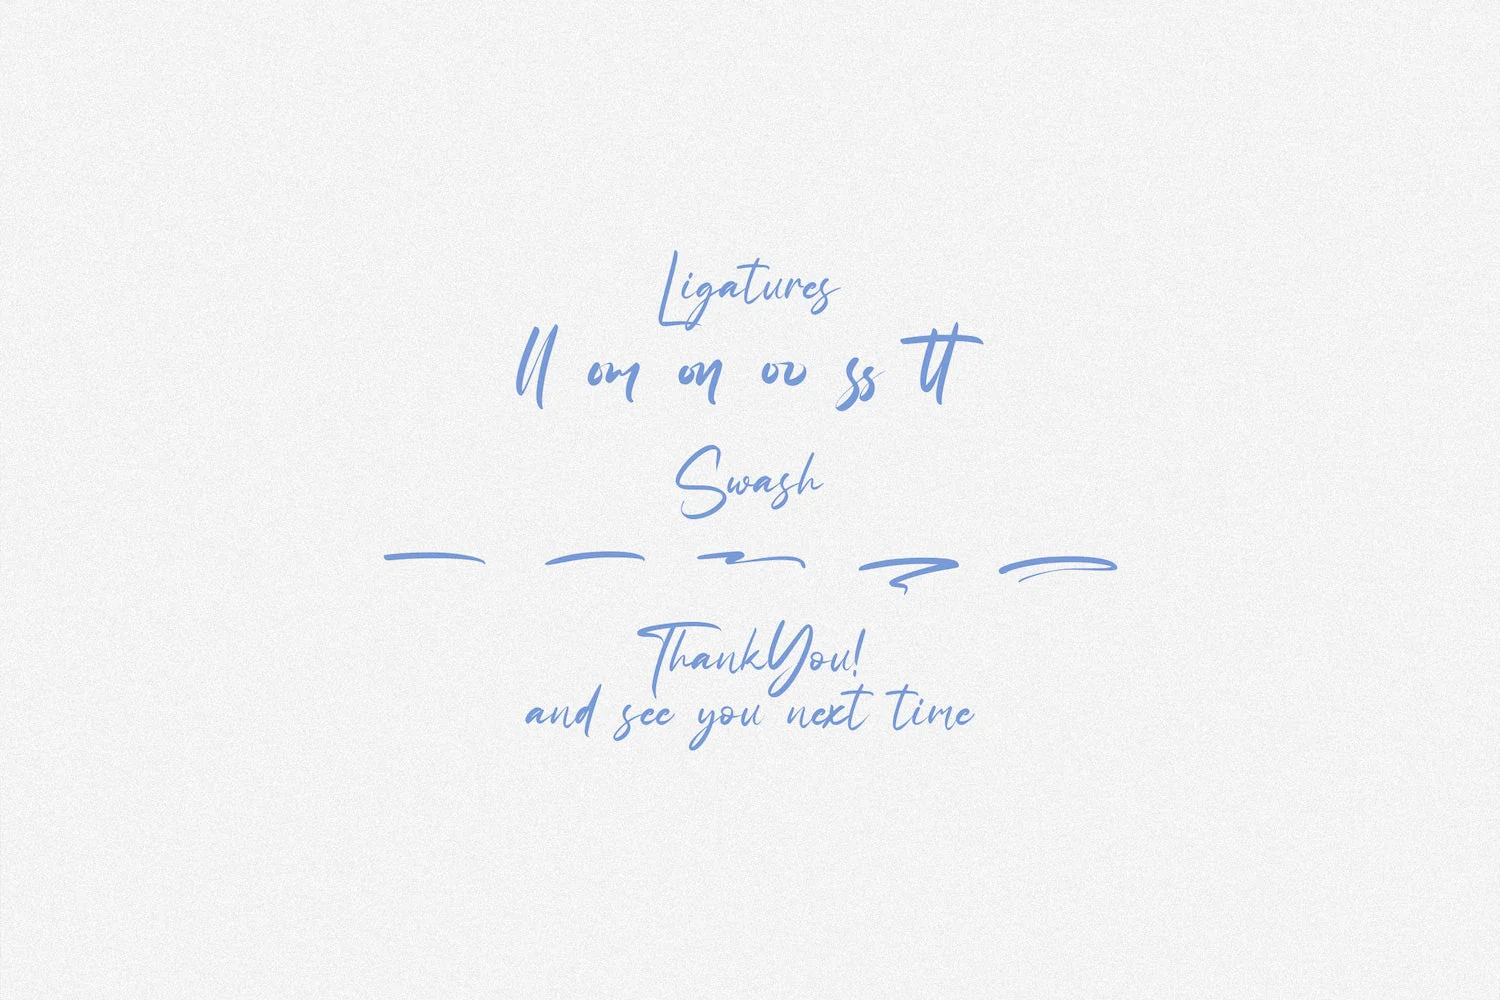 Ligatures
ll om on oo ss tt
Swash
ThankYou!
and see you next time